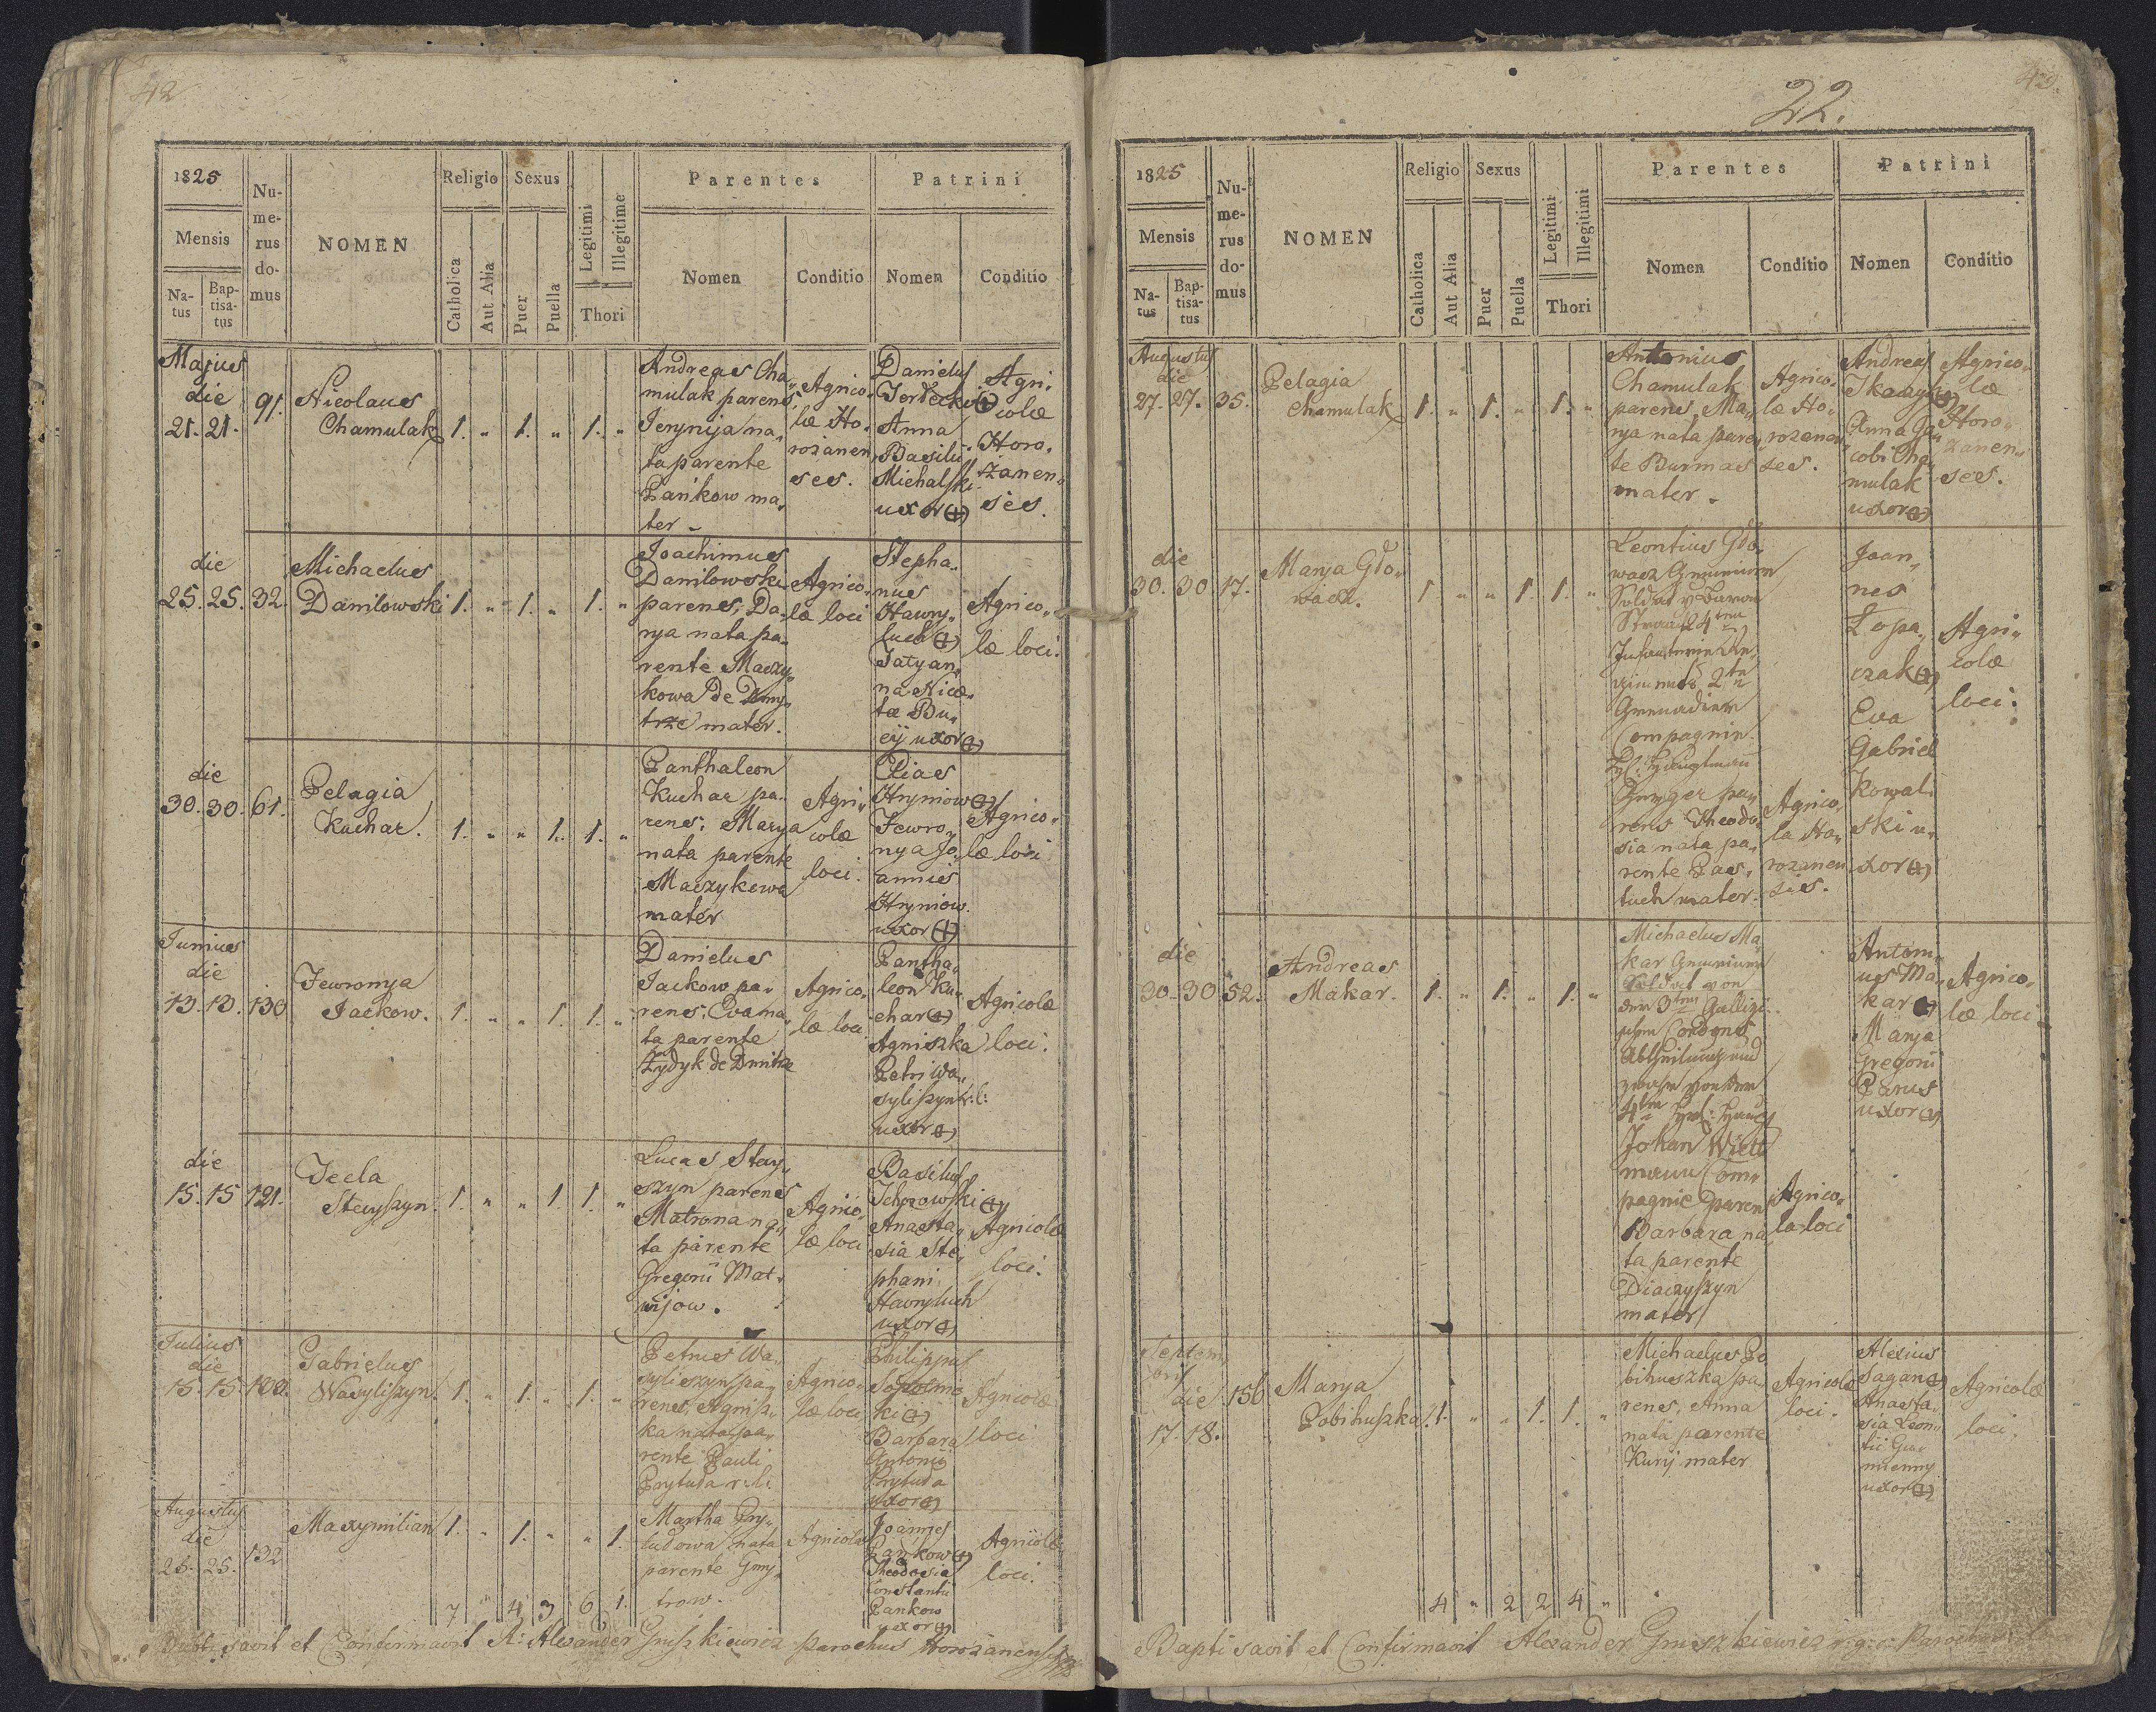 42
1825
Mensis
Na-
tus
Bap-
tisa-
tus
Nu-
me-
rus
do-
mus
NOMEN
Religio
Catholica
Aut Alia
Sexus
Puer
Puella
Legitimi
Illegitime
Thori
Parentes
Nomen
Conditio
Patrini
Nomen
Conditio
Majus
die
21. 21.
91.
Nicolaus
Chamulak
1. „ 1. „ 1. „
Andreas Cha„
mulak parens,
Jerynija na„
ta parente
Pańkow ma„
ter.
Agrico„
læ Ho„
rożanen„
ses.
Danielus
Anna
Basilii
Michalski
uxor (+)
Agri„
colæ
Horo„
żanen„
ses.
die
25. 25.
32.
Michaelus
Danilowski
1. „ 1. „ 1. „
Joachimus
Danilowski
parens, Da„
rya nata pa„
rente Maczy„
kowa de
mater.
Agrico„
læ loci
Stepha„
nus
Hawry„
luch (+)
Tatyan„
na Nice„
tæ Bu„
eÿ uxor (+)
Agrico„
læ loci.
die
30. 30.
61.
Pelagia
Kuchar.
1. „ „ 1. 1. „
Panthaleon
Kuchar pa„
rens, Marya
nata parente
Maczykowa
mater
Agri„
colæ
loci.
Elias
Hryniow (+)
Jewro„
nya Jo„
annis
Hryniow
uxor (+)
Agrico„
læ loci
Junius
die
13. 13.
130
Jewronya
Jackow.
1. „ „ 1. 1. „
Danielus
Jackow pa„
rens, Eva na„
ta parente
Żydyk de
Agrico„
læ loci
Pantha„
leon Ku„
char (+)
Agniszka
Petri Wa„
syliszyn r. l.
uxor (+)
Agricolæ
loci.
die
15. 15
121.
Tecla
Stecyszyn.
1. „ „ 1. 1. „
Lucas Stecy„
szyn parens
Matrona na„
ta parente
Gregorii Mat„
wijow.
Agrico„
læ loci
Basilius
(+)
Anasta„
sia Ste„
phani
Hawryluch
uxor (+)
Agricolæ
loci.
Julius
die
15. 15.
100.
Gabrielus
Wasyliszyn.
1. „ 1. „ 1. „
Petrus Wa„
syliszyn pa„
rens, Agnisz„
ka nata pa„
rente Pauli
Prytuła r. l.
Agrico„
læ loci
Philippus
Sopotnic
ki (+)
Barbara
Antonii
Prytuła
uxor (+)
Agricolæ
loci
Augustus
die
25. 25.
132
Maxymilian
1. „ 1. „ „ 1.
Martha Pry„
tułowa nata
parente Gmy„
trow.
Agricola
Joannes
Pańkow (+)
Theodosia
Constantii
Pańkow
uxor (+)
Agricolæ
loci.
7 „ 4 3 6 1
Baptisavit et Confirmavit R: Alexander Gruszkiewicz parochus Horożanensis
43.
22.
1825
Mensis
Na-
tus
Bap-
tisa-
tus
Nu-
me-
rus
do-
mus
NOMEN
Religio
Catholica
Aut Alia
Sexus
Puer
Puella
Legitimi
Illegitimi
Thori
Parentes
Nomen
Conditio
Patrini
Nomen
Conditio
Augustus
die
27. 27.
35.
Pelagia
Chamulak
1. „ 1. „ 1. „
Antonius
Chamulak
parens, Ma„
rya nata paren„
te Burmas
mater.
Agrico„
læ Ho„
rożanen„
ses.
Andreas
(+)
Anna Ja„
cobi Cha„
mulak
uxor (+)
Agrico„
læ
Horo„
żanen„
ses.
die
30. 30
17.
Marya Gło„
wacz.
1. „ „ 1. 1. „
Leontius Gło„
wacz Gemeiner
Soldat v Baron
24ten
Infanterie Re„
giments 2te
Grenadier
Compagnie
Hauptmann
pa„
rens Theodo„
sia nata pa„
rente Pas„
tuch mater.
Agrico„
la Ho„
rożanen
sis.
Joan„
nes
Łopa„
czak (+)
Eva
Gabriel
Kowal„
ski u„
xor (+)
Agri„
colæ
loci.
die
30. 30
52.
Andreas
Makar.
1. „ 1. „ 1. „
Michaelus Ma
kar Gemeiner
Soldat von
den 3ten Gallizi„
schen Cordons
Abtheilung und
zwahr von der
4ten
Johan
mann Com„
pagnie paren
Barbara na„
ta parente
Diaczyszyn
mater
Agrico„
la loci
Antoni„
us Ma„
kar (+)
Marya
Gregorii
Parus
uxor (+)
Agrico„
læ loci
Septem
bris
die
17. 18.
156
Marya
Pobihuszka.
1. „ „ 1. 1. „
Michaelus Po
bihuszka pa„
rens, Anna
nata parente
Kurij mater
Agricolæ
loci.
Alexius
Sagan (+)
Anasta„
sia Leon„
tii Gu„
mienny
uxor (+)
Agricolæ
loci.
4 „ 2 2 4 „
Baptisavit et Confirmavit Alexander Gruszkiewicz r. g. c. Parochus